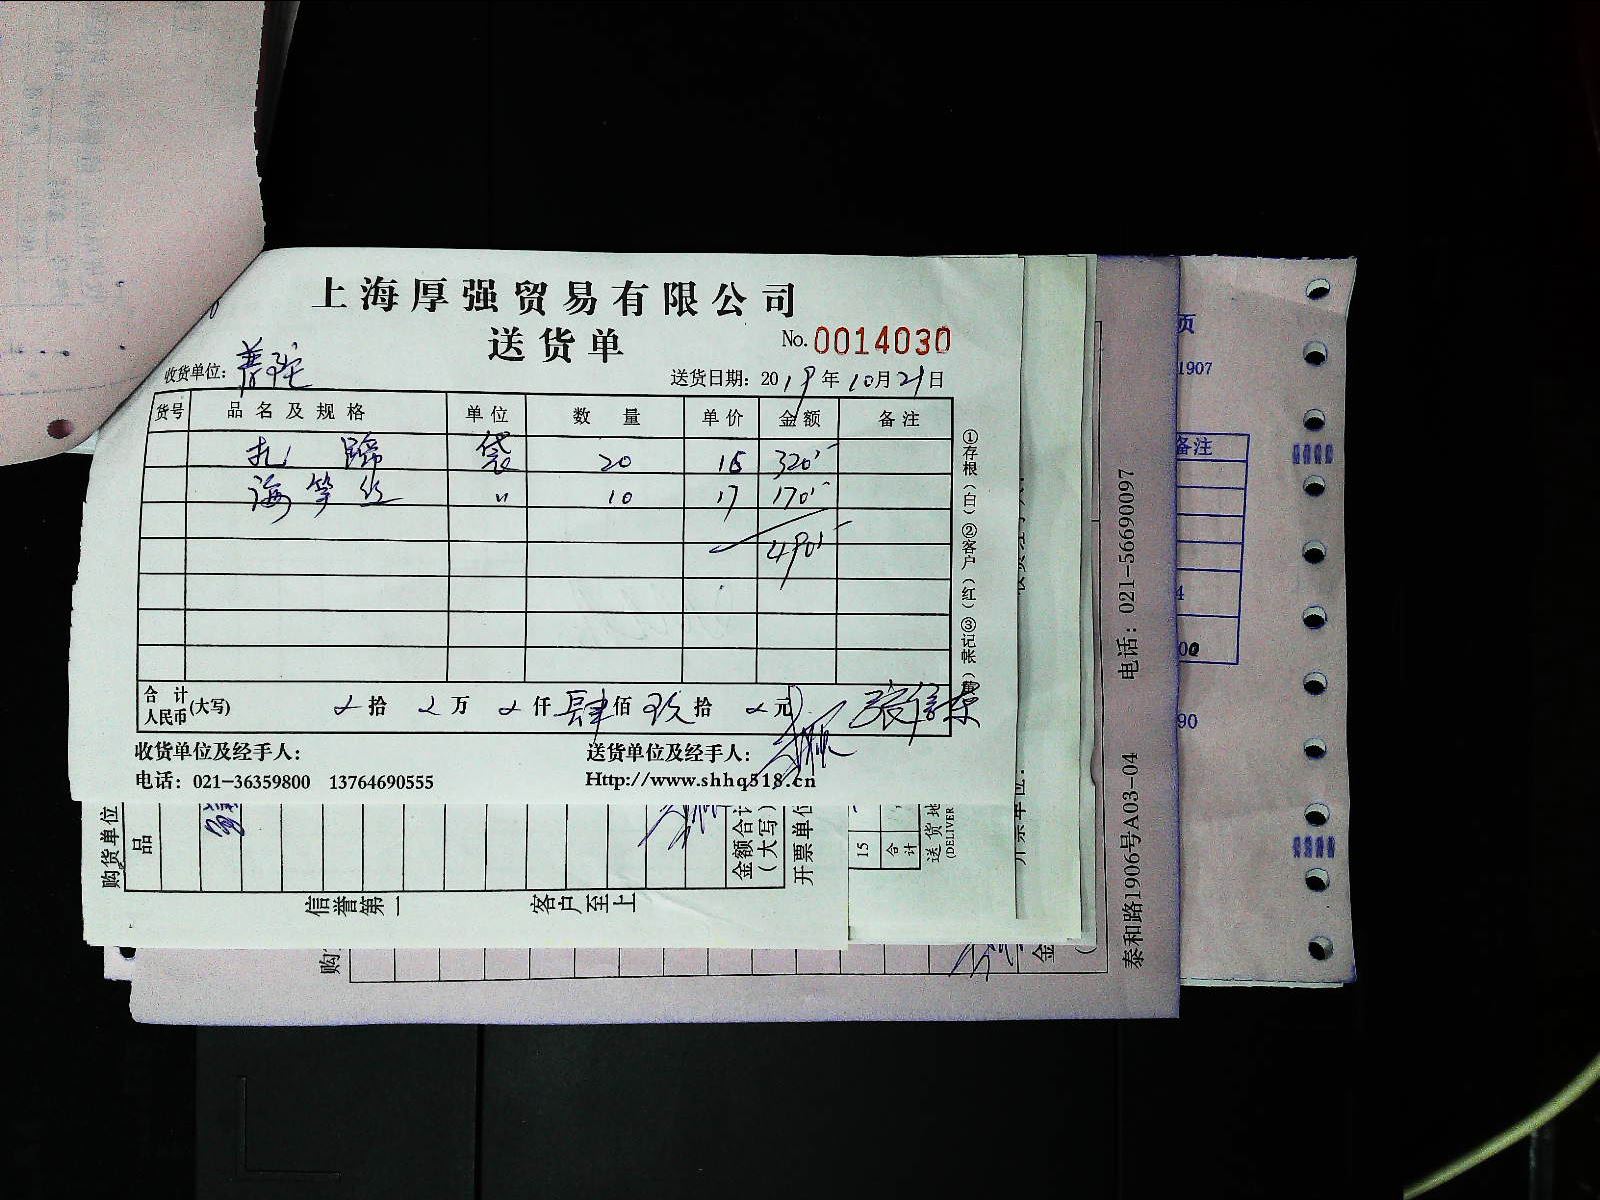 上海厚强贸易有限公司
送货单
No. 0014030
收货单位: 普陀
送货日期: 2019年10月21日
货号 品名及规格 单位 数量 单价 金额 备注
扎蹄 袋 20 16 320
海笋丝 〃 10 17 170
490
①存根(白) ②客户(红) ③记帐(黄
合计人民币(大写) 拾 万 仟 肆佰玖拾 元
收货单位及经手人:
送货单位及经手人:
电话: 021-36359800 13764690555
Http://www.shhq518.cn
购货单位
品
金额合计
(大写)
开票单位
信誉第一
客户至上
15
合计
送货地
(DELIVER
购
金
泰和路1906号A03-04 电话: 021-56690097
页
1907
备注
4
00
90